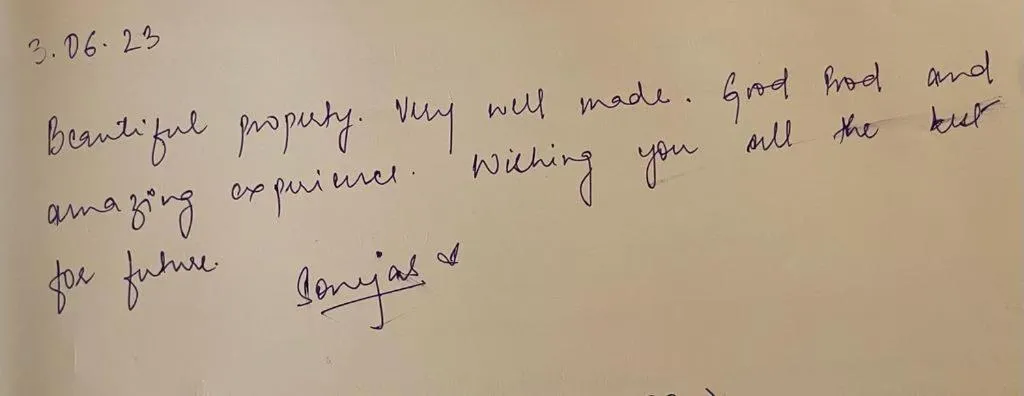 3.06.23
Beautiful property. Very well made. Good food and
amazing experience. Wishing you all the best
for future.